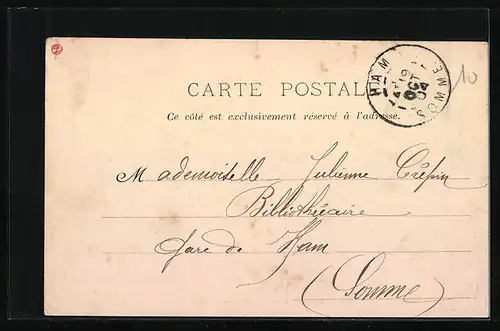 CARTE POSTALE
Ce côté est exclusivement réservé à l'adresse.
HAM
SOMME
OCT
10
Mademoiselle Julienne Crépin
Bibliothécaire
Gare de Ham
(Somme)